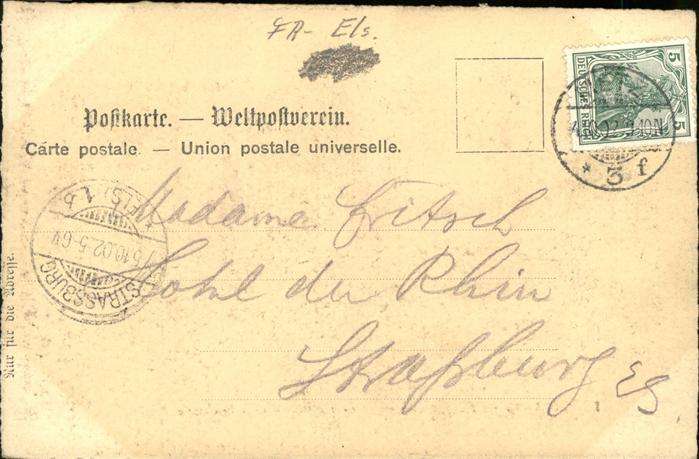 FR- Els.
Postkarte. — Weltpostverein.
Carte postale. — Union postale universelle.
5 5
4.10.02. 9-10N.
* 3 f
STRASSBURG (ELS) 1.b
5.10.02. 5-6V.
Madame Fritsch
Hotel du Rhin
Straßburg
Els
Nur für die Adresse.